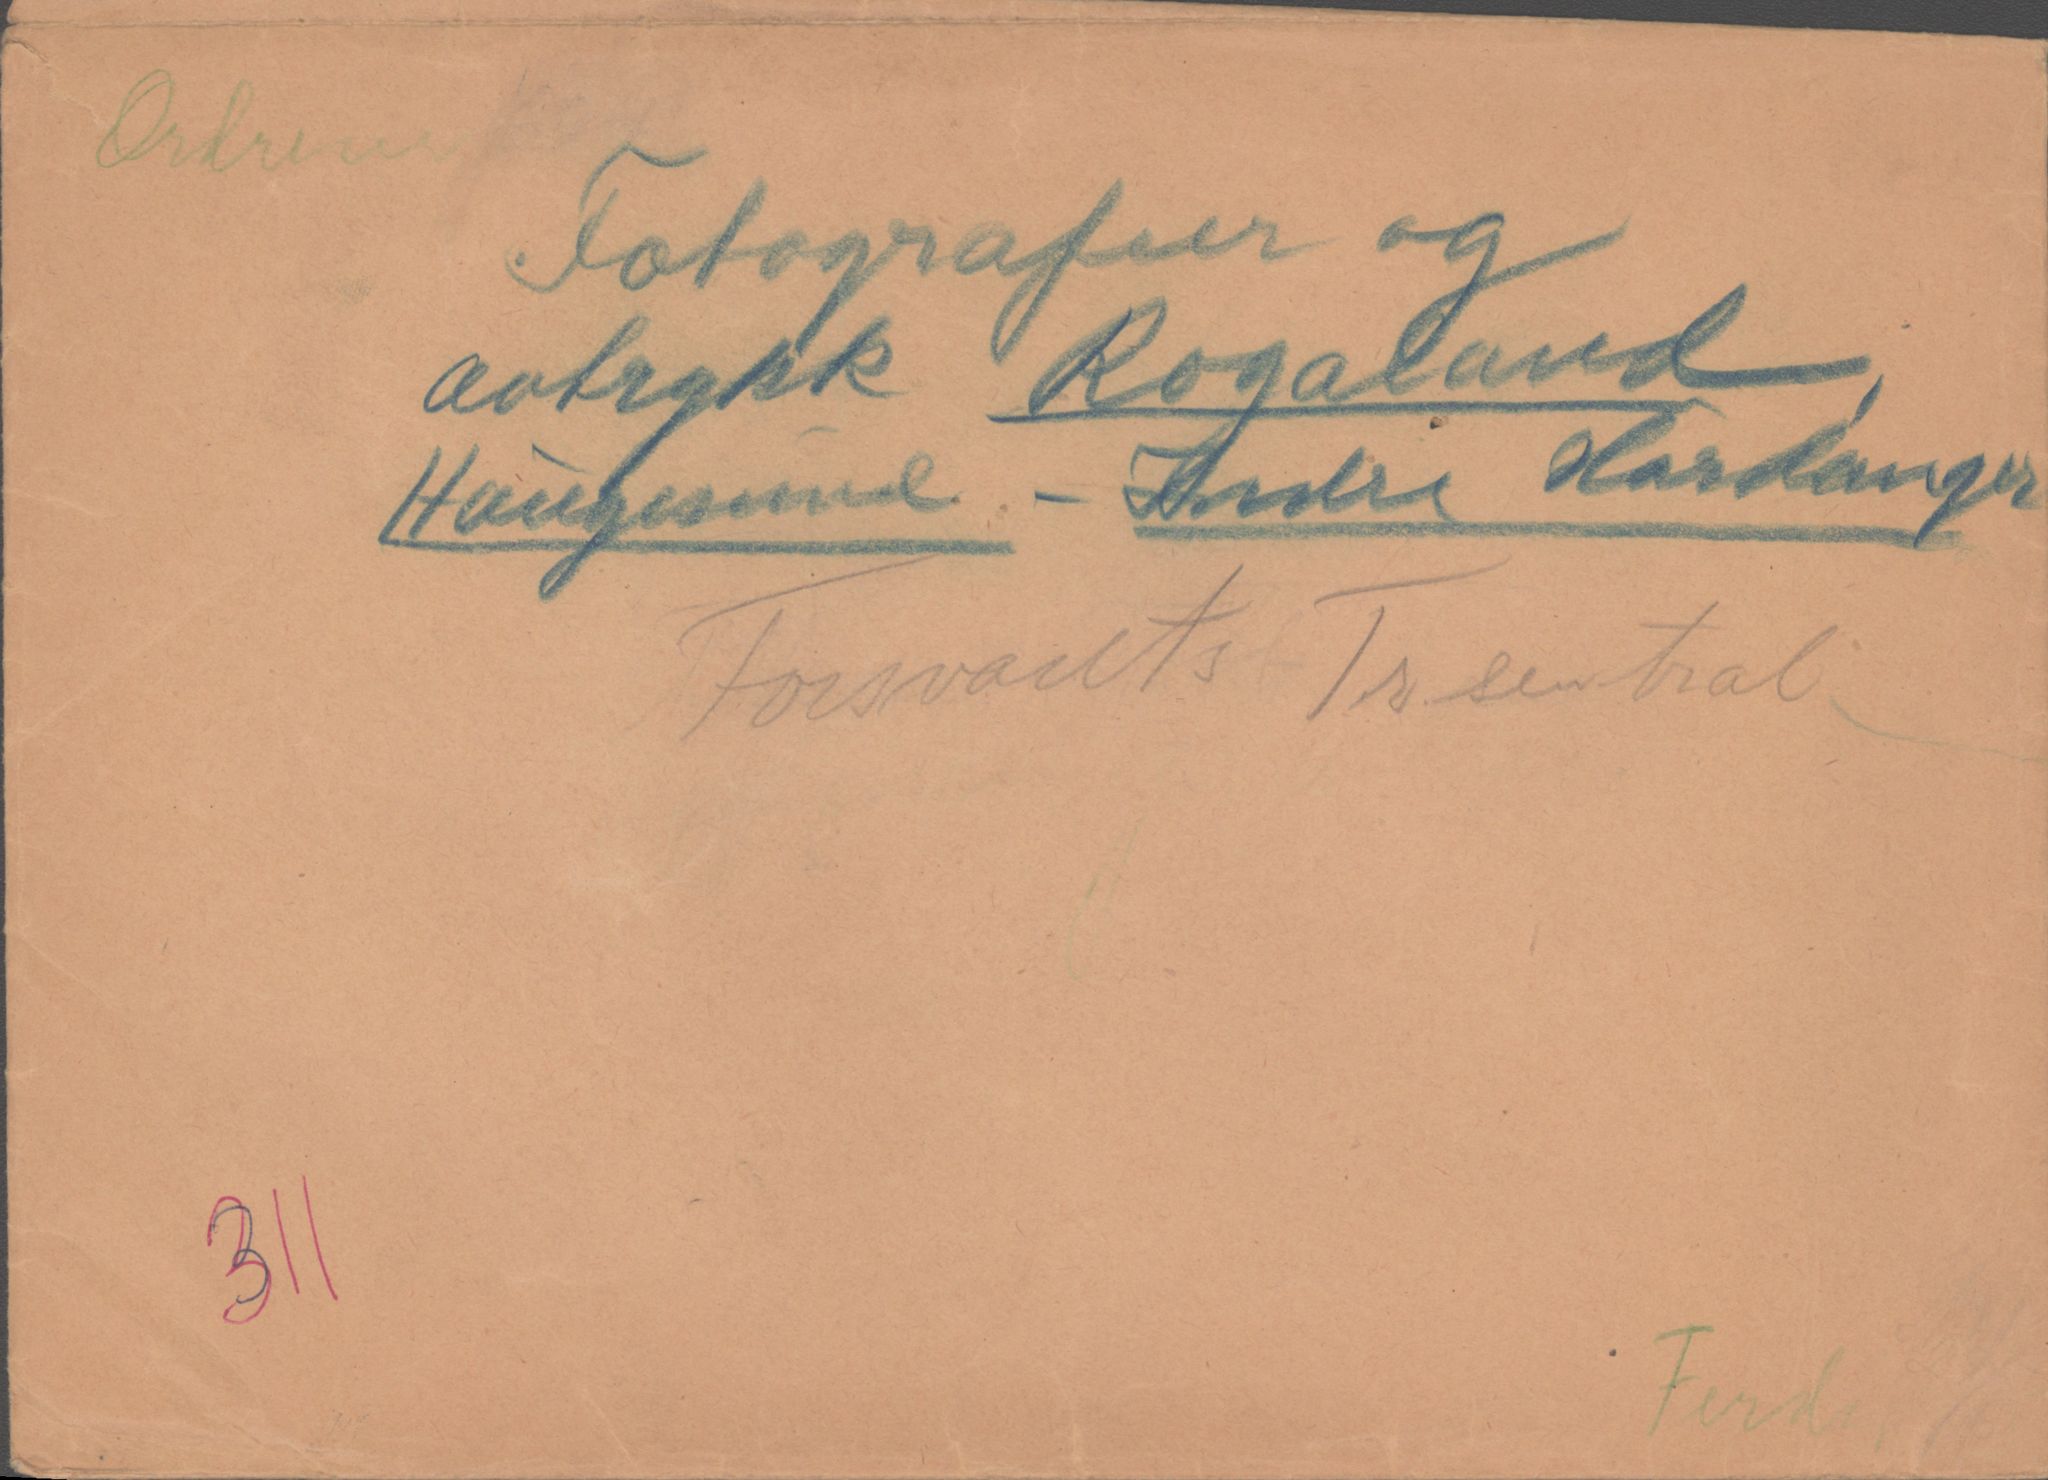 Fotografier og
avtrykk Rogaland,
Haugesund - Indre Hardanger
Forsvarets Tr. sentral
311
Ferdi